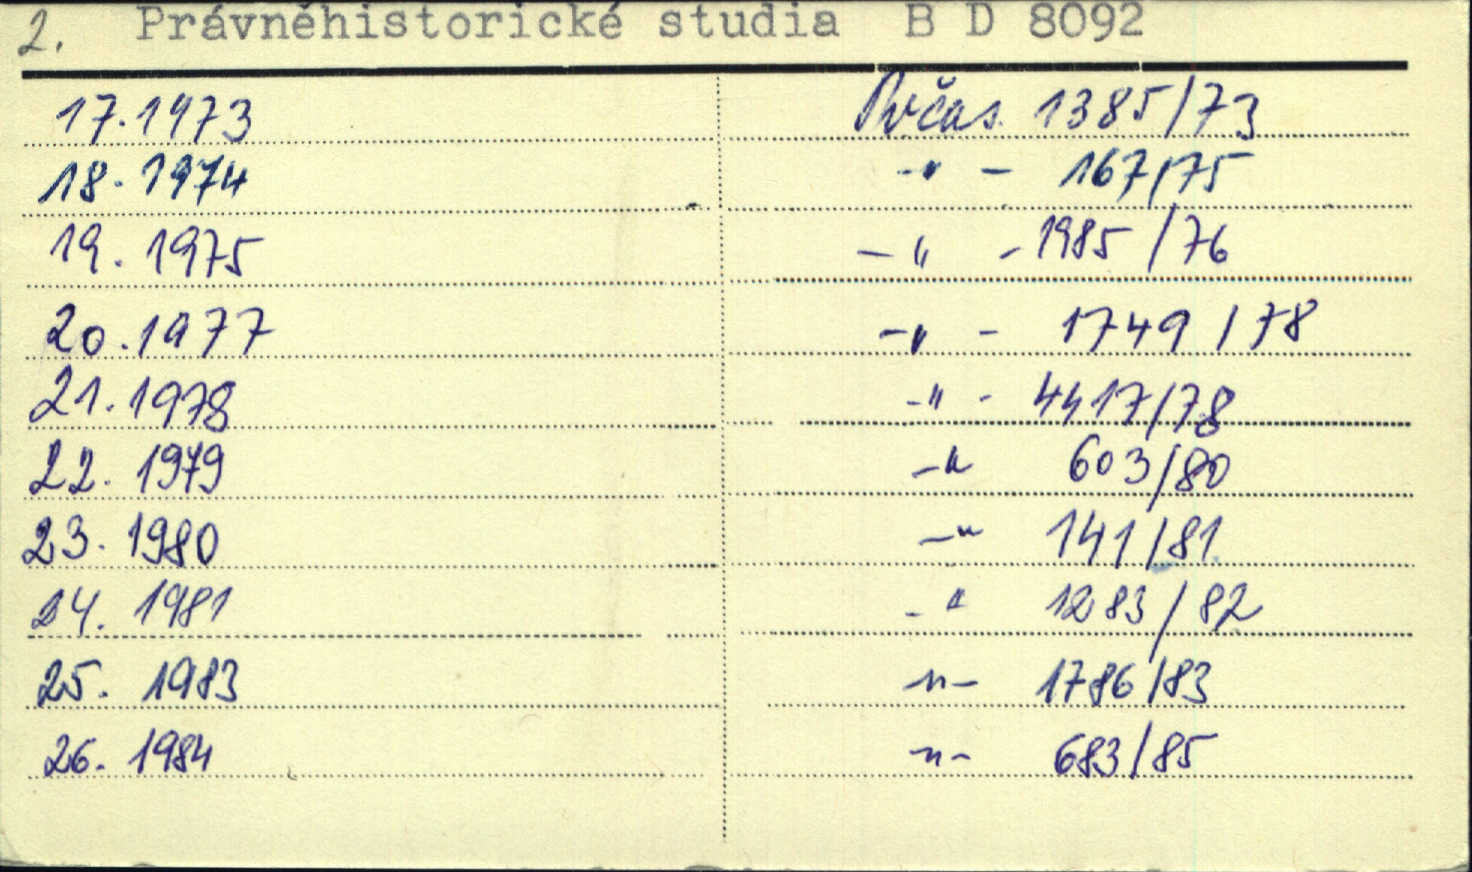 2. Právněhistorické studia B D 8092
17. 1973 Pvčas. 1385/73
18. 1974 -"- 167/75
19. 1975 -"- 1985/76
20. 1977 -"- 1749/78
21. 1978 -"- 4417/78
22. 1979 -" 603/80
23. 1980 -" 141/81
24. 1981 -" 1283/82
25. 1983 -"- 1786/83
26. 1984 -"- 683/85